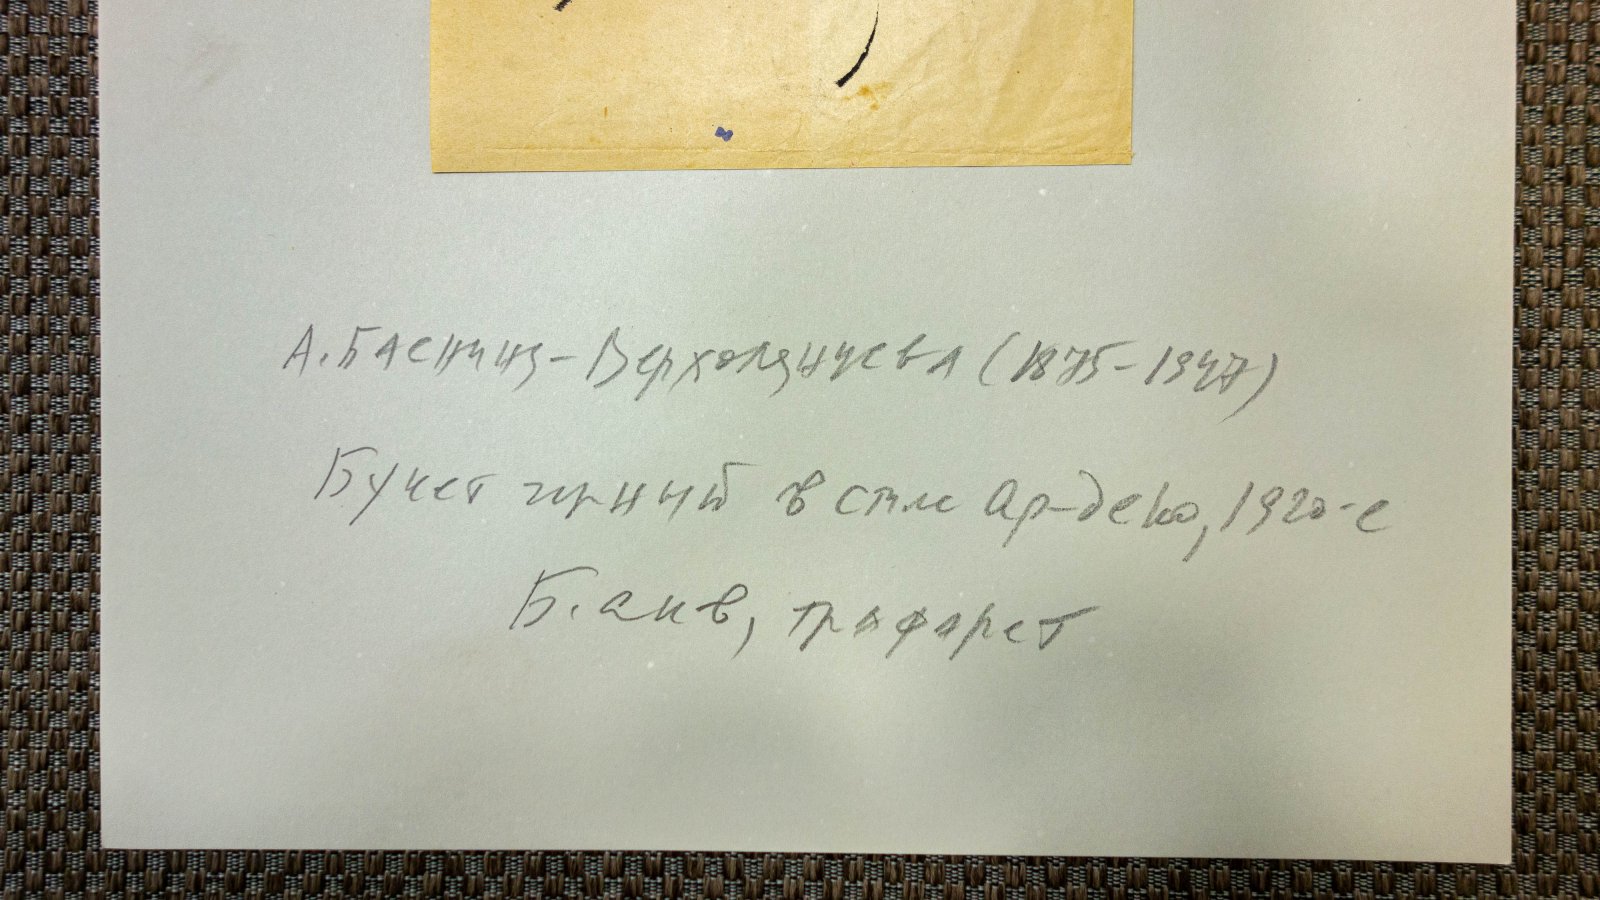 А. Баснина-Верхоланцева (1875-1947)
Букет в стиле Ар-деко, 1920-е
Б. акв, трафарет